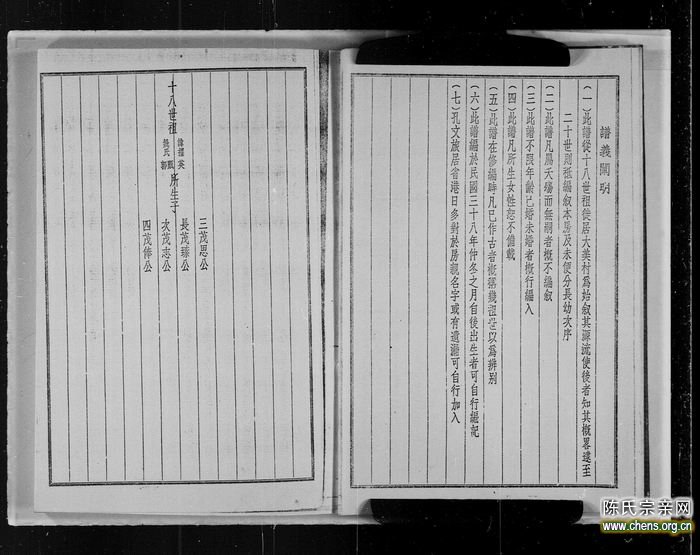 譜義闡明
(一)此譜從十八世祖徙居大美村為始叙其源流使後者知其概畧逮至
二十世則祗編叙本房及未便分長幼次序
(二)此譜凡屬夭殤而無嗣者概不編叙
(三)此譜不限年齡已婚未婚者概行編入
(四)此譜凡所生女性恕不備載
(五)此譜在修編時凡已作古者概稱幾祖世以為辨別
(六)此譜編於民國三十八年仲冬之月自後出生者可自行編記
(七)孔文族居省港日多對於房親名字或有遺漏可自行加入
十八世祖
諱擢英
氏
所生子
三茂思公
長茂臻公
次茂志公
四茂偉公
陈氏宗亲网
www.chens.org.cn